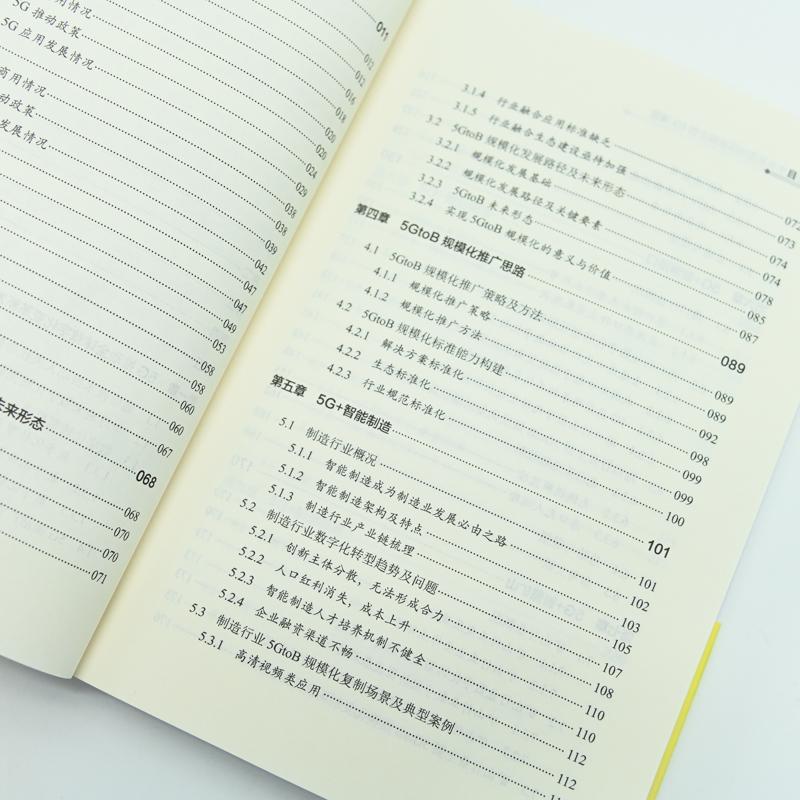 用情况
5G 推动政策
5G 应用发展情况
商用情况
动政策
发展情况
011
012
012
016
018
020
020
024
029
038
038
039
042
047
047
049
053
058
058
060
060
067
未来形态 068
068
070
070
071
目
3.1.4 行业融合应用标准缺乏 072
3.1.5 行业融合生态建设亟待加强 073
3.2 5GtoB 规模化发展路径及未来形态 074
3.2.1 规模化发展基础 074
3.2.2 规模化发展路径及关键要素 078
3.2.3 5GtoB 未来形态 085
3.2.4 实现 5GtoB 规模化的意义与价值 087
第四章 5GtoB 规模化推广思路 089
4.1 5GtoB 规模化推广策略及方法 089
4.1.1 规模化推广策略 089
4.1.2 规模化推广方法 092
4.2 5GtoB 规模化标准能力构建 098
4.2.1 解决方案标准化 099
4.2.2 生态标准化 099
4.2.3 行业规范标准化 100
第五章 5G+智能制造 101
5.1 制造行业概况 101
5.1.1 智能制造成为制造业发展必由之路 102
5.1.2 智能制造架构及特点 103
5.1.3 制造行业产业链梳理 105
5.2 制造行业数字化转型趋势及问题 107
5.2.1 创新主体分散，无法形成合力 108
5.2.2 人口红利消失，成本上升 110
5.2.3 智能制造人才培养机制不健全 110
5.2.4 企业融资渠道不畅 112
5.3 制造行业 5GtoB 规模化复制场景及典型案例 112
5.3.1 高清视频类应用